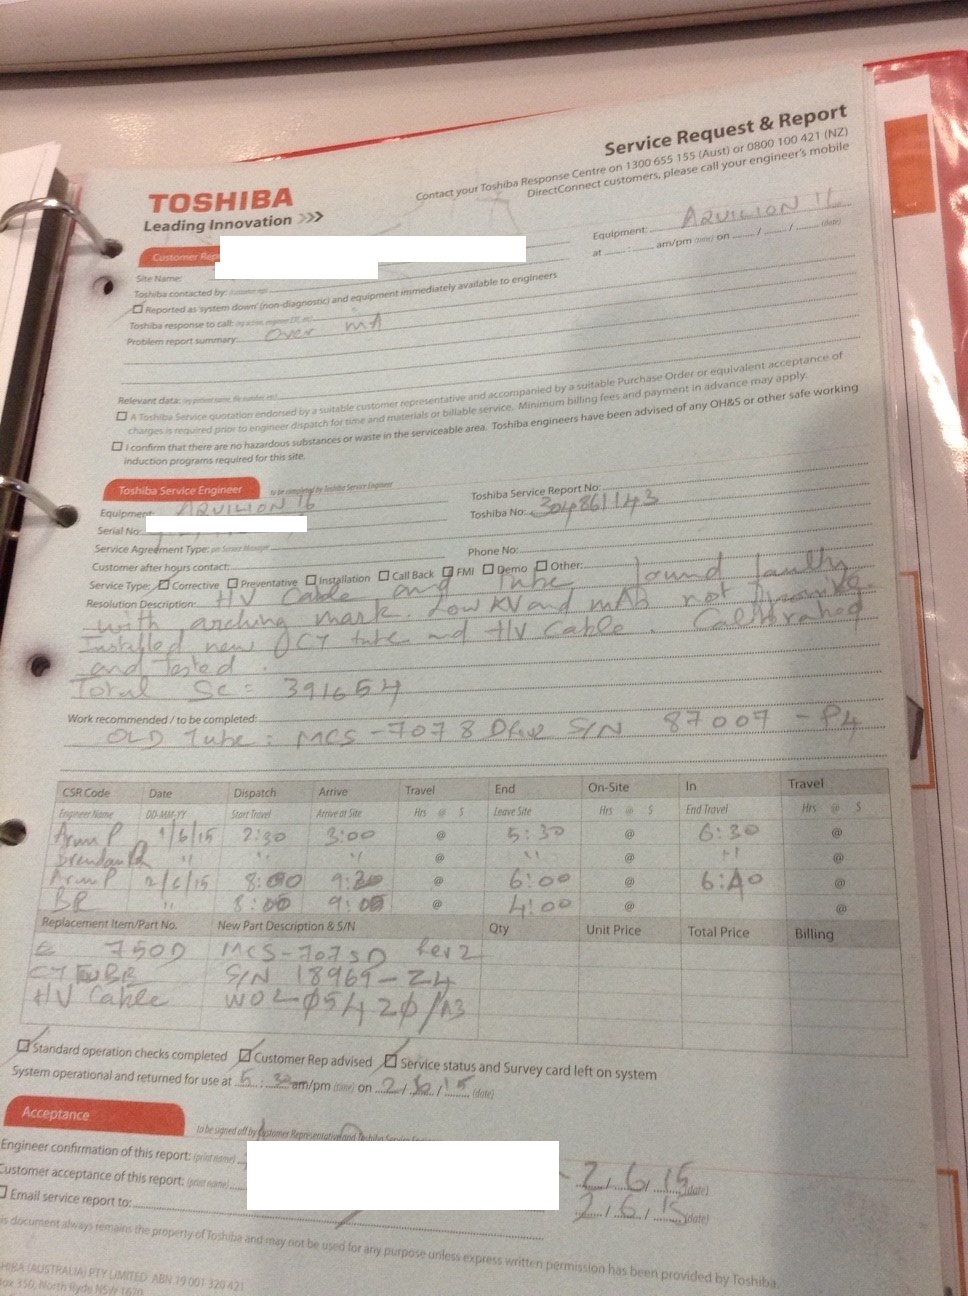 Service Request & Report
Contact your Toshiba Response Centre on 1300 655 155 (Aust) or 0800 100 421 (NZ)
DirectConnect customers, please call your engineer's mobile
TOSHIBA
Leading Innovation >>>
Customer Rep
Equipment: AQUILION 16
Site Name:
at ...... : ...... am/pm (time) on ...... / ...... / ...... (date)
Toshiba contacted by:
Reported as 'system down' (non-diagnostic) and equipment immediately available to engineers
Toshiba response to call:
Problem report summary: Over mA
Relevant data:
A Toshiba Service quotation endorsed by a suitable customer representative and accompanied by a suitable Purchase Order or equivalent acceptance of
charges is required prior to engineer dispatch for time and materials or billable service. Minimum billing fees and payment in advance may apply.
I confirm that there are no hazardous substances or waste in the serviceable area. Toshiba engineers have been advised of any OH&S or other safe working
induction programs required for this site.
Toshiba Service Engineer to be completed by Toshiba Service Engineer
Equipment: AQUILION 16
Toshiba Service Report No:
Serial No:
Toshiba No: 304861143
Service Agreement Type: per Service Manager
Customer after hours contact:
Phone No:
Service Type: Corrective Preventative Installation Call Back FMI Demo Other:
Resolution Description: HV Cable and Tube found faulty
with arching mark. Low KV and mAs not
Installed new CT tube and HV Cable. Calibrated
and Tested.
Total Sc = 391654
Work recommended / to be completed:
OLD Tube: MCS-7078 S/N 87007 - P4
CSR Code Date Dispatch Arrive Travel End On-Site In Travel
Engineer Name DD-MM-YY Start Travel Arrive at Site Hrs @ $ Leave Site Hrs @ $ End Travel Hrs @ $
Arun P 1/6/15 2:30 3:00 @ 5:30 @ 6:30 @
Brendan R " " " @ " @ " @
Arun P 2/6/15 8:00 9:20 @ 6:00 @ 6:40 @
BR " 8:00 9:00 @ 4:00 @ @
Replacement Item/Part No. New Part Description & S/N Qty Unit Price Total Price Billing
750D MCS-7073D
CT TUBE S/N 18969-Z4
HV Cable W02-05420/A3
Standard operation checks completed Customer Rep advised Service status and Survey card left on system
System operational and returned for use at 5:30 am/pm (time) on 2/6/15 (date)
Acceptance
to be signed off by Customer Representative and Toshiba Service
Engineer confirmation of this report: (print name) 2/6/15 (date)
Customer acceptance of this report: (print name) 2/6/15 (date)
Email service report to:
is document always remains the property of Toshiba and may not be used for any purpose unless express written permission has been provided by Toshiba.
HIBA (AUSTRALIA) PTY LIMITED ABN 19 001 320 421
Box 350, North Ryde NSW 1670